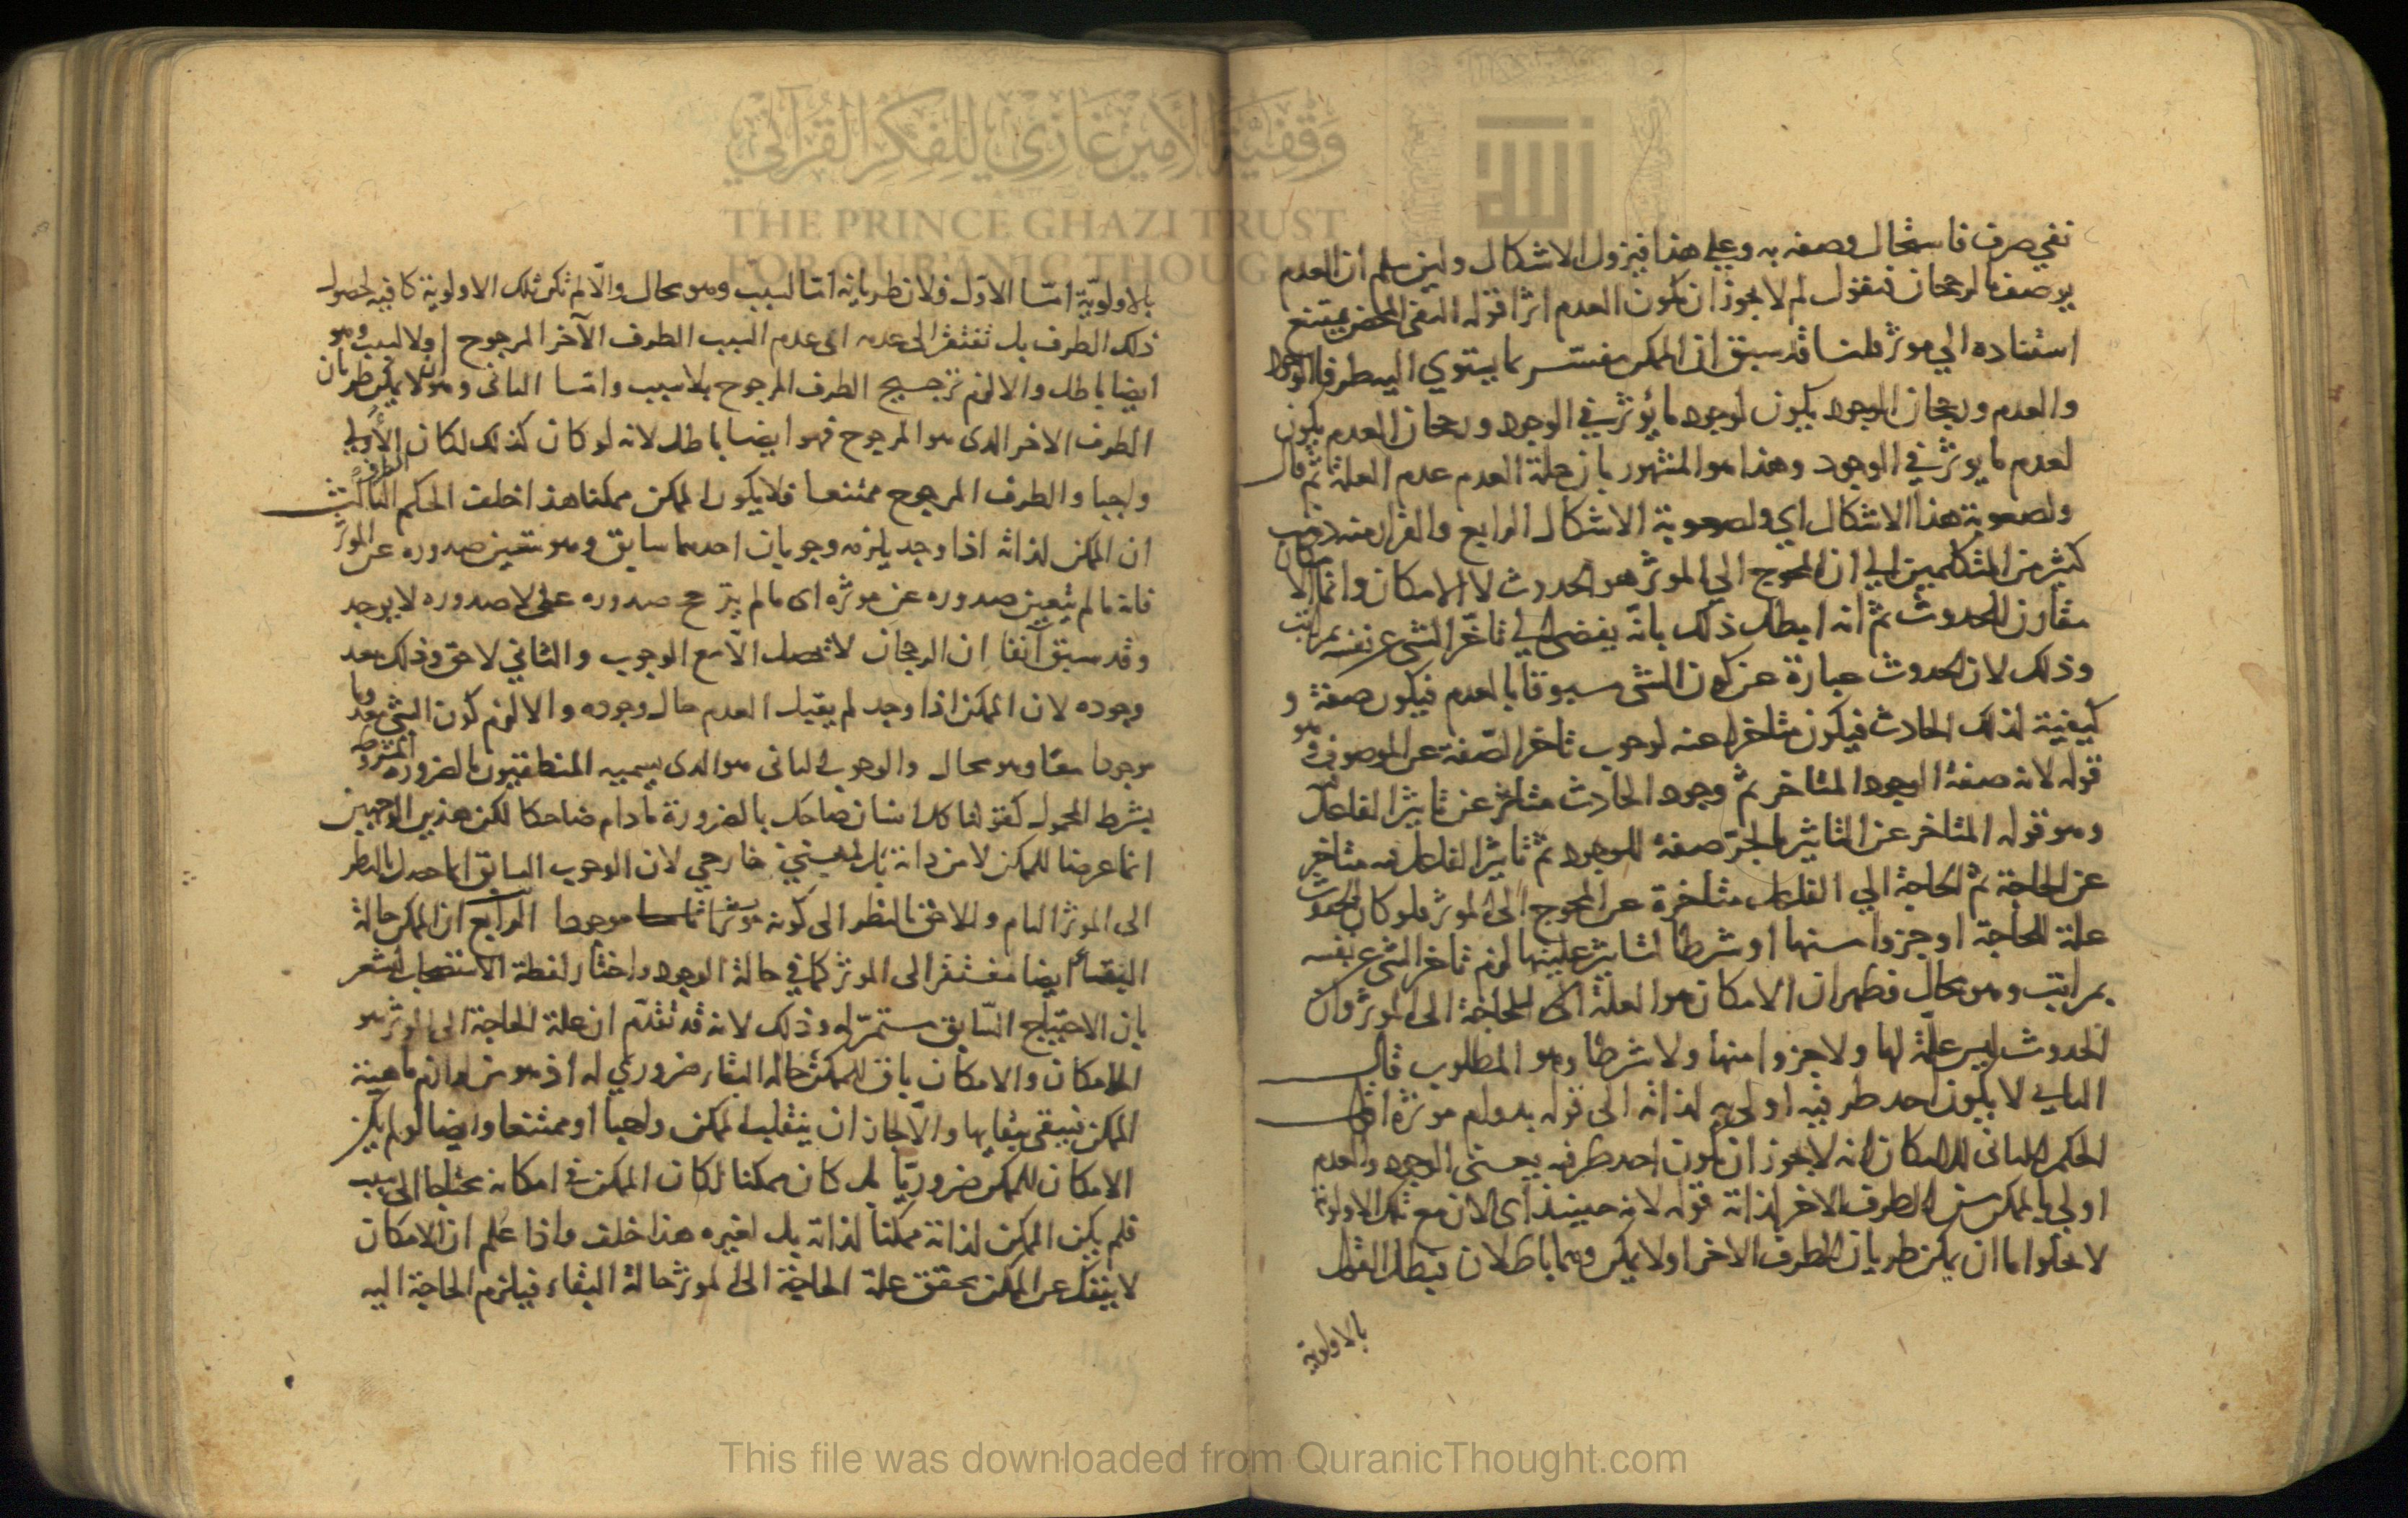 نفي صرف فاستحال وصفه به وعلى هذا فيزول الاشكال ولين سلم ان العدم
يوصف بالرجحان فنقول لم لا يجوز ان يكون العدم اثرا قوله النفي المحض يمتنع
استناده الي موثر قلنا قد سبق ان الممكن مفسر بما يستوي اليه طرفا الوجود
والعدم ورجحان الوجود يكون لوجود ما يؤثر في الوجود ورجحان العدم يكون
لعدم ما يوثر في الوجود وهذا هو المشهور بان علة العدم عدم العلة ثم قال
ولصعوبة هذا الاشكال اي ولصعوبة الاشكال الرابع والفرار منه ذهب
كثير من المتكلمين الي ان المحوج الي الموثر هو الحدوث لا الامكان وانما الامكان
مقارن للحدوث ثم انه ابطل ذلك بانه يفضي الي تاخر الشي عن نفسه بمراتب
وذلك لان الحدوث عبارة عن كون الشي مسبوقا بالعدم فيكون صفة و
كيفية لذلك الحادث فيكون متاخرا عنه لوجوب تاخر الصفة عن الموصوف وهو
قوله لانه صفة الوجود المتاخر ثم وجود الحادث متاخر عن تاثير الفاعل فيه
وهو قوله المتاخر عن التاثير بالجر صفة للوجود ثم تاثير الفاعل فيه متاخر
عن الحاجة ثم الحاجة الي الفاعل متاخرة عن المحوج الى الموثر فلو كان الحدوث
علة الحاجة او جزوا منها او شرطا لتاثير علتها لزم تاخر الشي عن نفسه
بمراتب وهو محال فظهر ان الامكان هو العلة الى الحاجة الى الموثر وان
الحدوث ليس علة لها ولا جزوا منها ولا شرطا وهو المطلوب قال
الثاني لا يكون احد طرفيه اولى به لذاته الى قوله بدوام موثره اقول
الحكم الثاني للامكان انه لا يجوز ان يكون احد طرفيه يعني الوجود والعدم
اولى بالممكن من الطرف الاخر لذاته قوله لانه حينئذ اى لان مع تلك الاولوية
لا يخلوا اما ان يمكن طريان الطرف الاخر او لا يمكن وهما باطلان فبطل القول
بالاولوية
بالاولوية امّا الاول فلان طريانه اما لسبب وهو محال والّا لم تكن تلك الاولوية كافية لحصول
ذلك الطرف بل تفتقر الى عدمه اى عدم السبب الطرف الآخر المرجوح او لا لسبب وهو
ايضا باطل والا لزم ترجيح الطرف المرجوح بلا سبب وامّا الثانى وهو انه لا يمكن طريان
الطرف الاخر الذى هو المرجوح فهو ايضا باطل لانه لو كان كذلك لكان الطرف الأولى
واجبا والطرف المرجوح ممتنعا فلا يكون الممكن ممكنا هذا خلف الحكم الثالث
ان الممكن لذاته اذا وجد يلزمه وجوبان احدهما سابق وهو تعين صدوره عن الموثر
فانه ما لم يتعين صدوره عن موثره اى ما لم يترجح صدوره على لا صدوره لا يوجد
وقد سبق آنفا ان الرجحان لا تحصل الّا مع الوجوب والثاني لاحق وذلك بعد
وجوده لان الممكن اذا وجد لم يقبل العدم حال وجوده والا لزم كون الشي معدوما
موجودا معًا وهو محال والوجوب الثانى هو الذى يسميه المنطقيون بالضرورة المشروطة
بشرط المحمول كقولنا كل انسان ضاحك بالضرورة ما دام ضاحكا لكن هذين الوجهين
انما عرضا للممكن لا من ذاته بل لشيئ خارجي لان الوجوب السابق انما حصل بالنظر
الى الموثر التام واللاحق بالنظر الى كونه موجودا الرابع ان الممكن حالة
البقاء ايضا مفتقر الى الموثر كما في حالة الوجود واختار لفظة الاستصحاب ليشعر
بان الاحتياج السّابق مستمرّ له وذلك لانه قد تقدّم ان علة الحاجة الى الموثر هو
الامكان والامكان باق للممكن حالة البقاء ضروري له اذ هو من لوازم ماهية
الممكن فيبقى ببقايها والّا لجاز ان ينقلب الممكن واجبا او ممتنعا وايضا لو لم يكن
الامكان للممكن ضروريّا بل كان ممكنا لكان الممكن في امكانه محتاجا الى سبب
فلم يكن الممكن لذاته ممكنا لذاته بل لغيره هذا خلف واذا عُلم ان الامكان
لا ينفك عن الممكن تحقق علة الحاجة الى الموثر حالة البقاء فيلزم الحاجة اليه
وَقْفِيَّةُ الأَمِيرِ غَازِي لِلْفِكْرِ القُرْآنِي
THE PRINCE GHAZI TRUST
FOR QUR'ANIC THOUGHT
This file was downloaded from QuranicThought.com